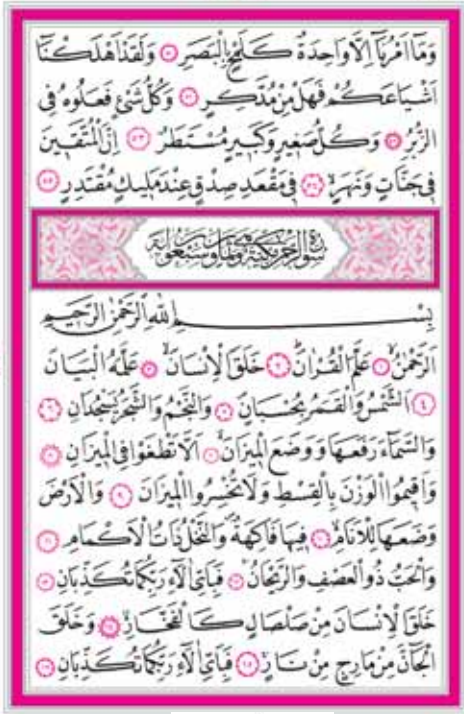 وَمَٓا اَمْرُنَٓا اِلَّا وَاحِدَةٌ كَلَمْحٍ بِالْبَصَرِ ﴿٥٠﴾ وَلَقَدْ اَهْلَكْنَٓا
اَشْيَاعَكُمْ فَهَلْ مِنْ مُدَّكِرٍ ﴿٥١﴾ وَكُلُّ شَيْءٍ فَعَلُوهُ فِي
الزُّبُرِ ﴿٥٢﴾ وَكُلُّ صَغِيرٍ وَكَبِيرٍ مُسْتَطَرٌ ﴿٥٣﴾ اِنَّ الْمُتَّقِينَ
فِي جَنَّاتٍ وَنَهَرٍ ﴿٥٤﴾ فِي مَقْعَدِ صِدْقٍ عِنْدَ مَلِيكٍ مُقْتَدِرٍ ﴿٥٥﴾
بِسْمِ اللّٰهِ الرَّحْمٰنِ الرَّحِيمِ
اَلرَّحْمٰنُ ﴿١﴾ عَلَّمَ الْقُرْاٰنَ ﴿٢﴾ خَلَقَ الْاِنْسَانَ ﴿٣﴾ عَلَّمَهُ الْبَيَانَ
﴿٤﴾ اَلشَّمْسُ وَالْقَمَرُ بِحُسْبَانٍ ﴿٥﴾ وَالنَّجْمُ وَالشَّجَرُ يَسْجُدَانِ ﴿٦﴾
وَالسَّمَٓاءَ رَفَعَهَا وَوَضَعَ الْمِيزَانَ ﴿٧﴾ اَلَّا تَطْغَوْا فِي الْمِيزَانِ ﴿٨﴾
وَاَقِيمُوا الْوَزْنَ بِالْقِسْطِ وَلَا تُخْسِرُوا الْمِيزَانَ ﴿٩﴾ وَالْاَرْضَ
وَضَعَهَا لِلْاَنَامِ ﴿١٠﴾ فِيهَا فَاكِهَةٌ وَالنَّخْلُ ذَاتُ الْاَكْمَامِ ﴿١١﴾
وَالْحَبُّ ذُو الْعَصْفِ وَالرَّيْحَانُ ﴿١٢﴾ فَبِاَيِّ اٰلَٓاءِ رَبِّكُمَا تُكَذِّبَانِ ﴿١٣﴾
خَلَقَ الْاِنْسَانَ مِنْ صَلْصَالٍ كَالْفَخَّارِ ﴿١٤﴾ وَخَلَقَ
الْجَٓانَّ مِنْ مَارِجٍ مِنْ نَارٍ ﴿١٥﴾ فَبِاَيِّ اٰلَٓاءِ رَبِّكُمَا تُكَذِّبَانِ ﴿١٦﴾